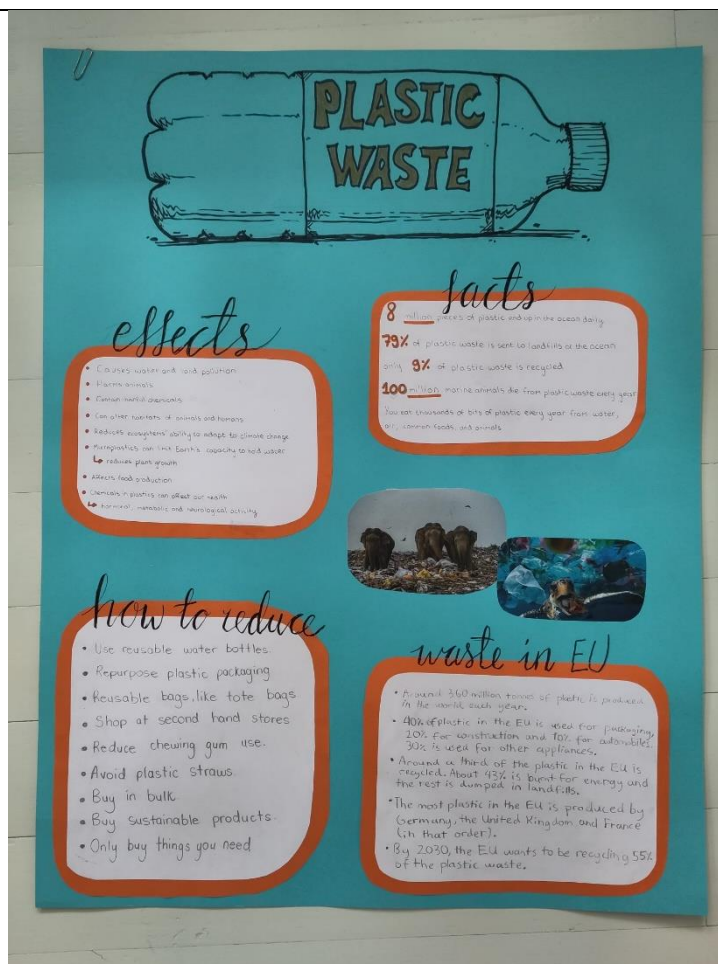 PLASTIC
WASTE
effects
• Causes water and soil pollution
• Harms animals
• Contain harmful chemicals
• Can alter habitats of animals and humans
• Reduces ecosystems' ability to adapt to climate change
• Microplastics can limit Earth's capacity to hold water
↳ reduces plant growth
• Affects food production
• Chemicals in plastics can affect our health
↳ hormonal, metabolic and neurological activity
facts
8 million pieces of plastic end up in the ocean daily
79% of plastic waste is sent to landfills or the ocean
only 9% of plastic waste is recycled
100 million marine animals die from plastic waste every year
You eat thousands of bits of plastic every year from water,
air, common foods, and animals
how to reduce
• Use reusable water bottles
• Repurpose plastic packaging
• Reusable bags, like tote bags
• Shop at second hand stores
• Reduce chewing gum use
• Avoid plastic straws
• Buy in bulk
• Buy sustainable products
• Only buy things you need
waste in EU
• Around 360 million tonnes of plastic is produced
in the world each year.
• 40% of plastic in the EU is used for packaging,
20% for construction and 10% for automobiles.
30% is used for other appliances.
• Around a third of the plastic in the EU is
recycled. About 43% is burnt for energy and
the rest is dumped in landfills.
• The most plastic in the EU is produced by
Germany, the United Kingdom and France
(in that order).
• By 2030, the EU wants to be recycling 55%
of the plastic waste.